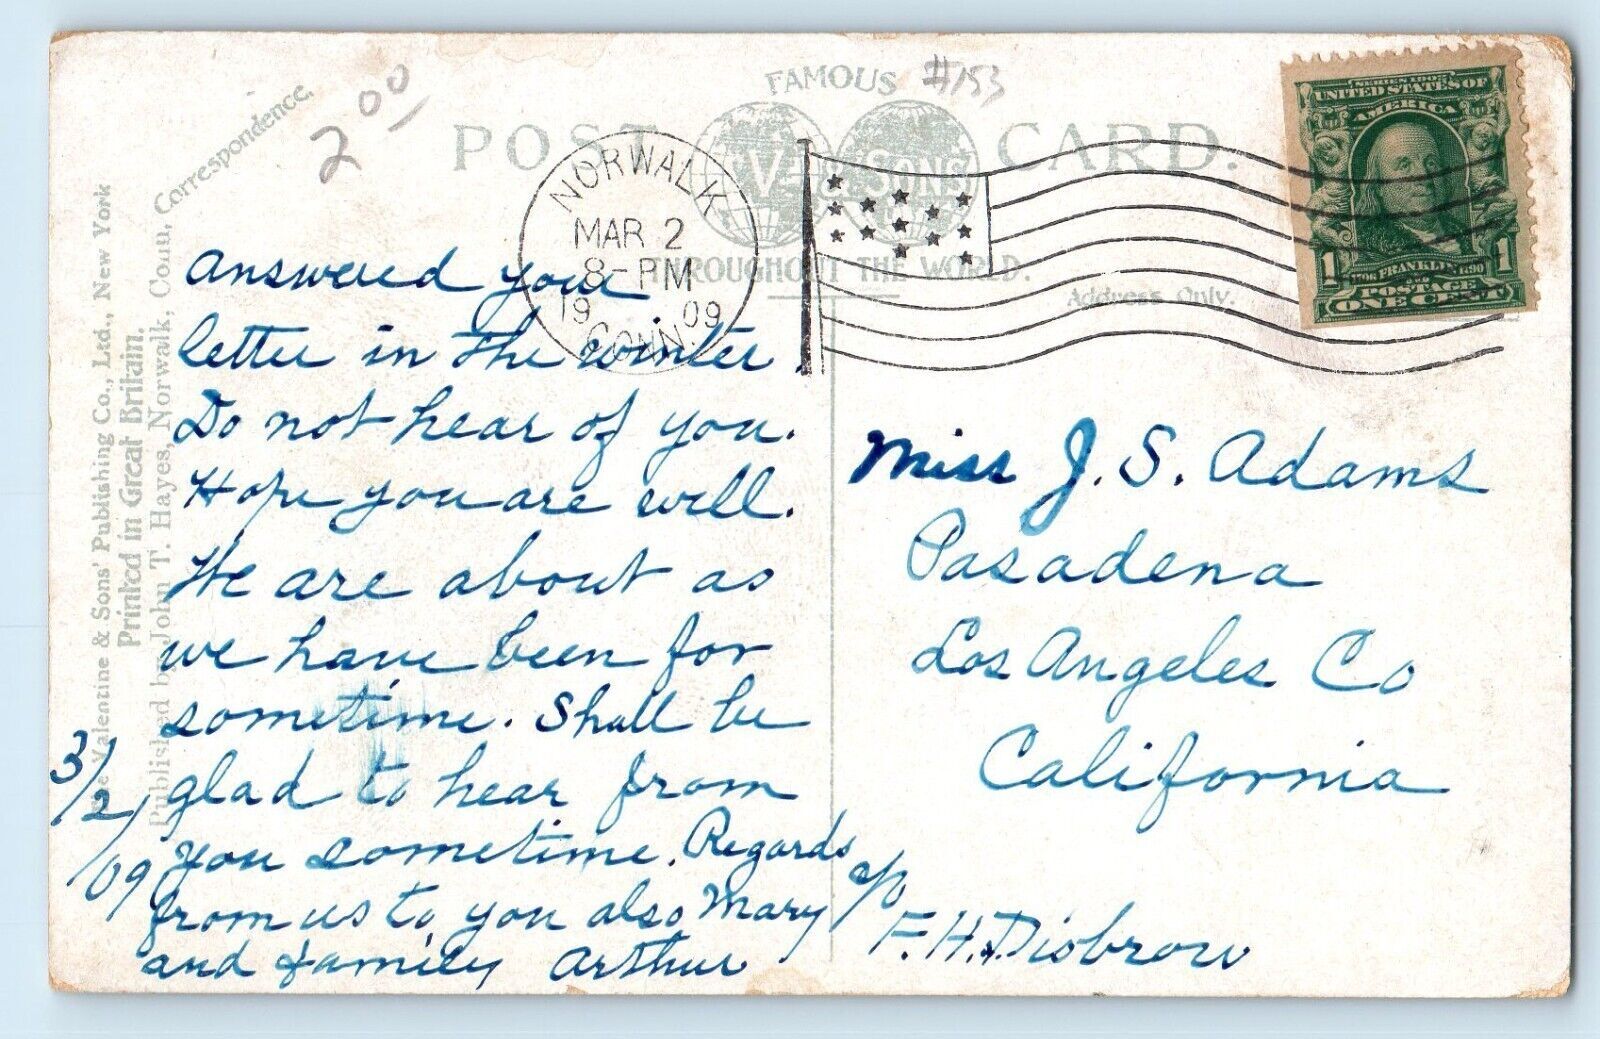 2 00
#153
FAMOUS
POST CARD.
V & SONS
THROUGHOUT THE WORLD.
Address Only.
Correspondence.
The Valentine & Sons' Publishing Co., Ltd., New York
Printed in Great Britain.
Published by John T. Hayes, Norwalk, Conn.
NORWALK
MAR 2
8-PM
19 09
CONN.
SERIES 1902
UNITED STATES OF
AMERICA
1 1
FRANKLIN
POSTAGE
ONE CENT
Answered your
letter in the winter.
Do not hear of you.
Hope you are well.
We are about as
we have been for
sometime. Shall be
glad to hear from
you sometime. Regards
from us to you also Mary
and family Arthur
3/2/09
Miss J. S. Adams
Pasadena
Los Angeles Co
California
c/o
F. H. Disbrow